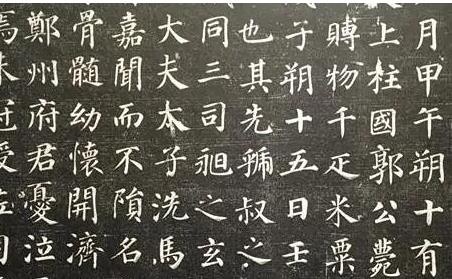 月甲午朔十有
上柱國郭公薨
賻物千疋米粟
子朔十五日壬
也其先虢叔之
同三司昶之玄
大夫太子洗馬
嘉聞而不隕名
骨髓幼懷開濟
鄭州府君憂泣